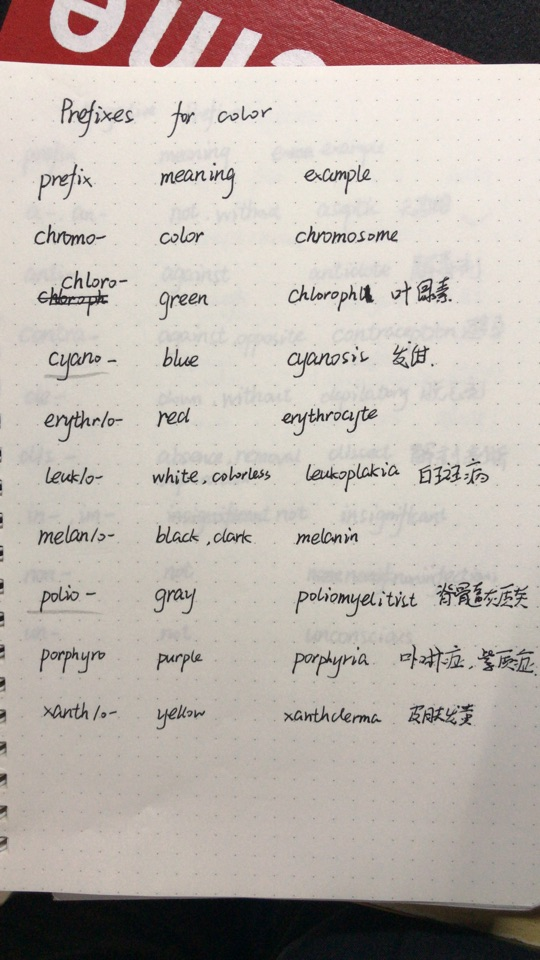 Prefixes for color
prefix meaning example
chromo- color chromosome
chloro- green chlorophll 叶国素
cyano- blue cyanosis 发绀.
erythr/o- red erythrocyte
leuk/o- white, colorless leukoplakia 白斑病
melan/o- black, dark melanin
polio- gray poliomyelitist 脊骨
porphyro purple porphyria 卟啉症, 紫质症
xanth/o- yellow xanthderma 皮肤发黄